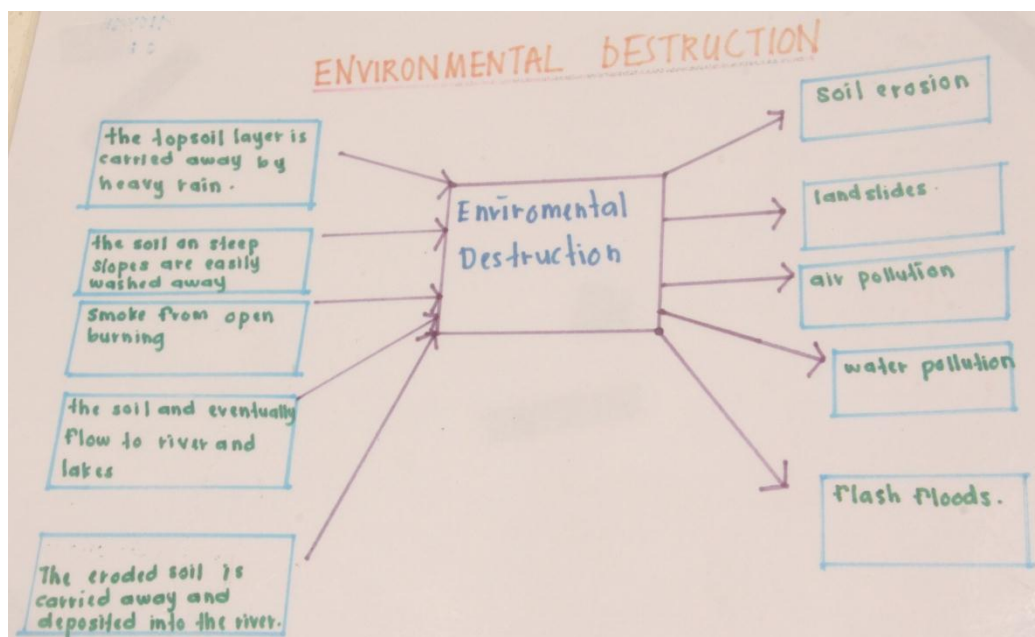 ENVIRONMENTAL DESTRUCTION
the topsoil layer is
carried away by
heavy rain.
the soil on steep
slopes are easily
washed away
smoke from open
burning
the soil and eventually
flow to river and
lakes
The eroded soil is
carried away and
deposited into the river.
Enviromental
Destruction
soil erosion
landslides.
air pollution
water pollution
flash floods.